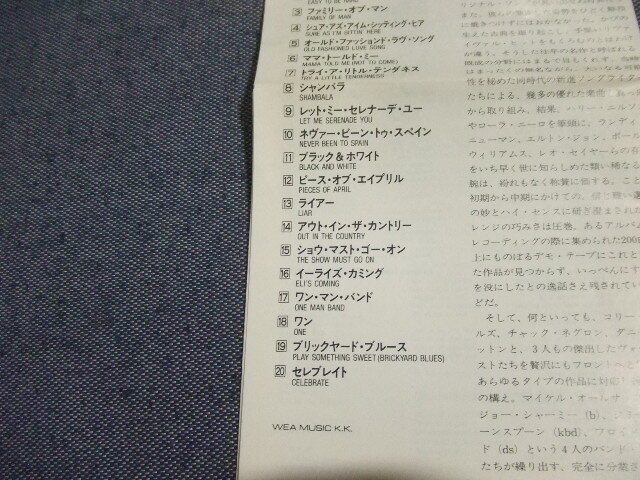 EASY TO BE HARD
3 ファミリー・オブ・マン
FAMILY OF MAN
4 シュア・アズ・アイム・シッティング・ヒア
SURE AS I'M SITTIN' HERE
5 オールド・ファッションド・ラヴ・ソング
OLD FASHIONED LOVE SONG
6 ママ・トールド・ミー
MAMA TOLD ME (NOT TO COME)
7 トライ・ア・リトル・テンダネス
TRY A LITTLE TENDERNESS
8 シャンバラ
SHAMBALA
9 レット・ミー・セレナーデ・ユー
LET ME SERENADE YOU
10 ネヴァー・ビーン・トゥ・スペイン
NEVER BEEN TO SPAIN
11 ブラック&ホワイト
BLACK AND WHITE
12 ピース・オブ・エイプリル
PIECES OF APRIL
13 ライアー
LIAR
14 アウト・イン・ザ・カントリー
OUT IN THE COUNTRY
15 ショウ・マスト・ゴー・オン
THE SHOW MUST GO ON
16 イーライズ・カミング
ELI'S COMING
17 ワン・マン・バンド
ONE MAN BAND
18 ワン
ONE
19 ブリックヤード・ブルース
PLAY SOMETHING SWEET (BRICKYARD BLUES)
20 セレブレイト
CELEBRATE
WEA MUSIC K.K.
性を秘めた同時代の新進ソングライタ
たちによる、幾多の優れた楽曲
から取り組み、結果、ハリー・ニルソ
やローラ・ニーロを筆頭に、ランディ
ニューマン、エルトン・ジョン、ポー
ウィリアムス、レオ・セイヤーらの有
をいち早く世に知らしめた類い稀なる
腕は、紛れもなく称賛に値する。こと
初期から中期にかけての、
の妙とハイ・センスに研ぎ澄まされた
レンジの巧みさは圧巻。あるアルバム
レコーディングの際に集められた200
上にものぼるデモ・テープにこれと
た作品が見つからず、いっぺんにす
を没にしたとの逸話さえ残されてい
どだ。
そして、何といっても、コリー・
ルズ、チャック・ネグロン、ダニ
ットンと、3人もの傑出したヴォ
ストたちを贅沢にもフロントへと
あらゆるタイプの作品に対応
の構え。マイケル・オールサ
ジョー・シャーミー(b)、ジミ
ーンスプーン(kbd)、フロイ
ド(ds)という4人のバンド・
たちが繰り出す、完全に分業さ